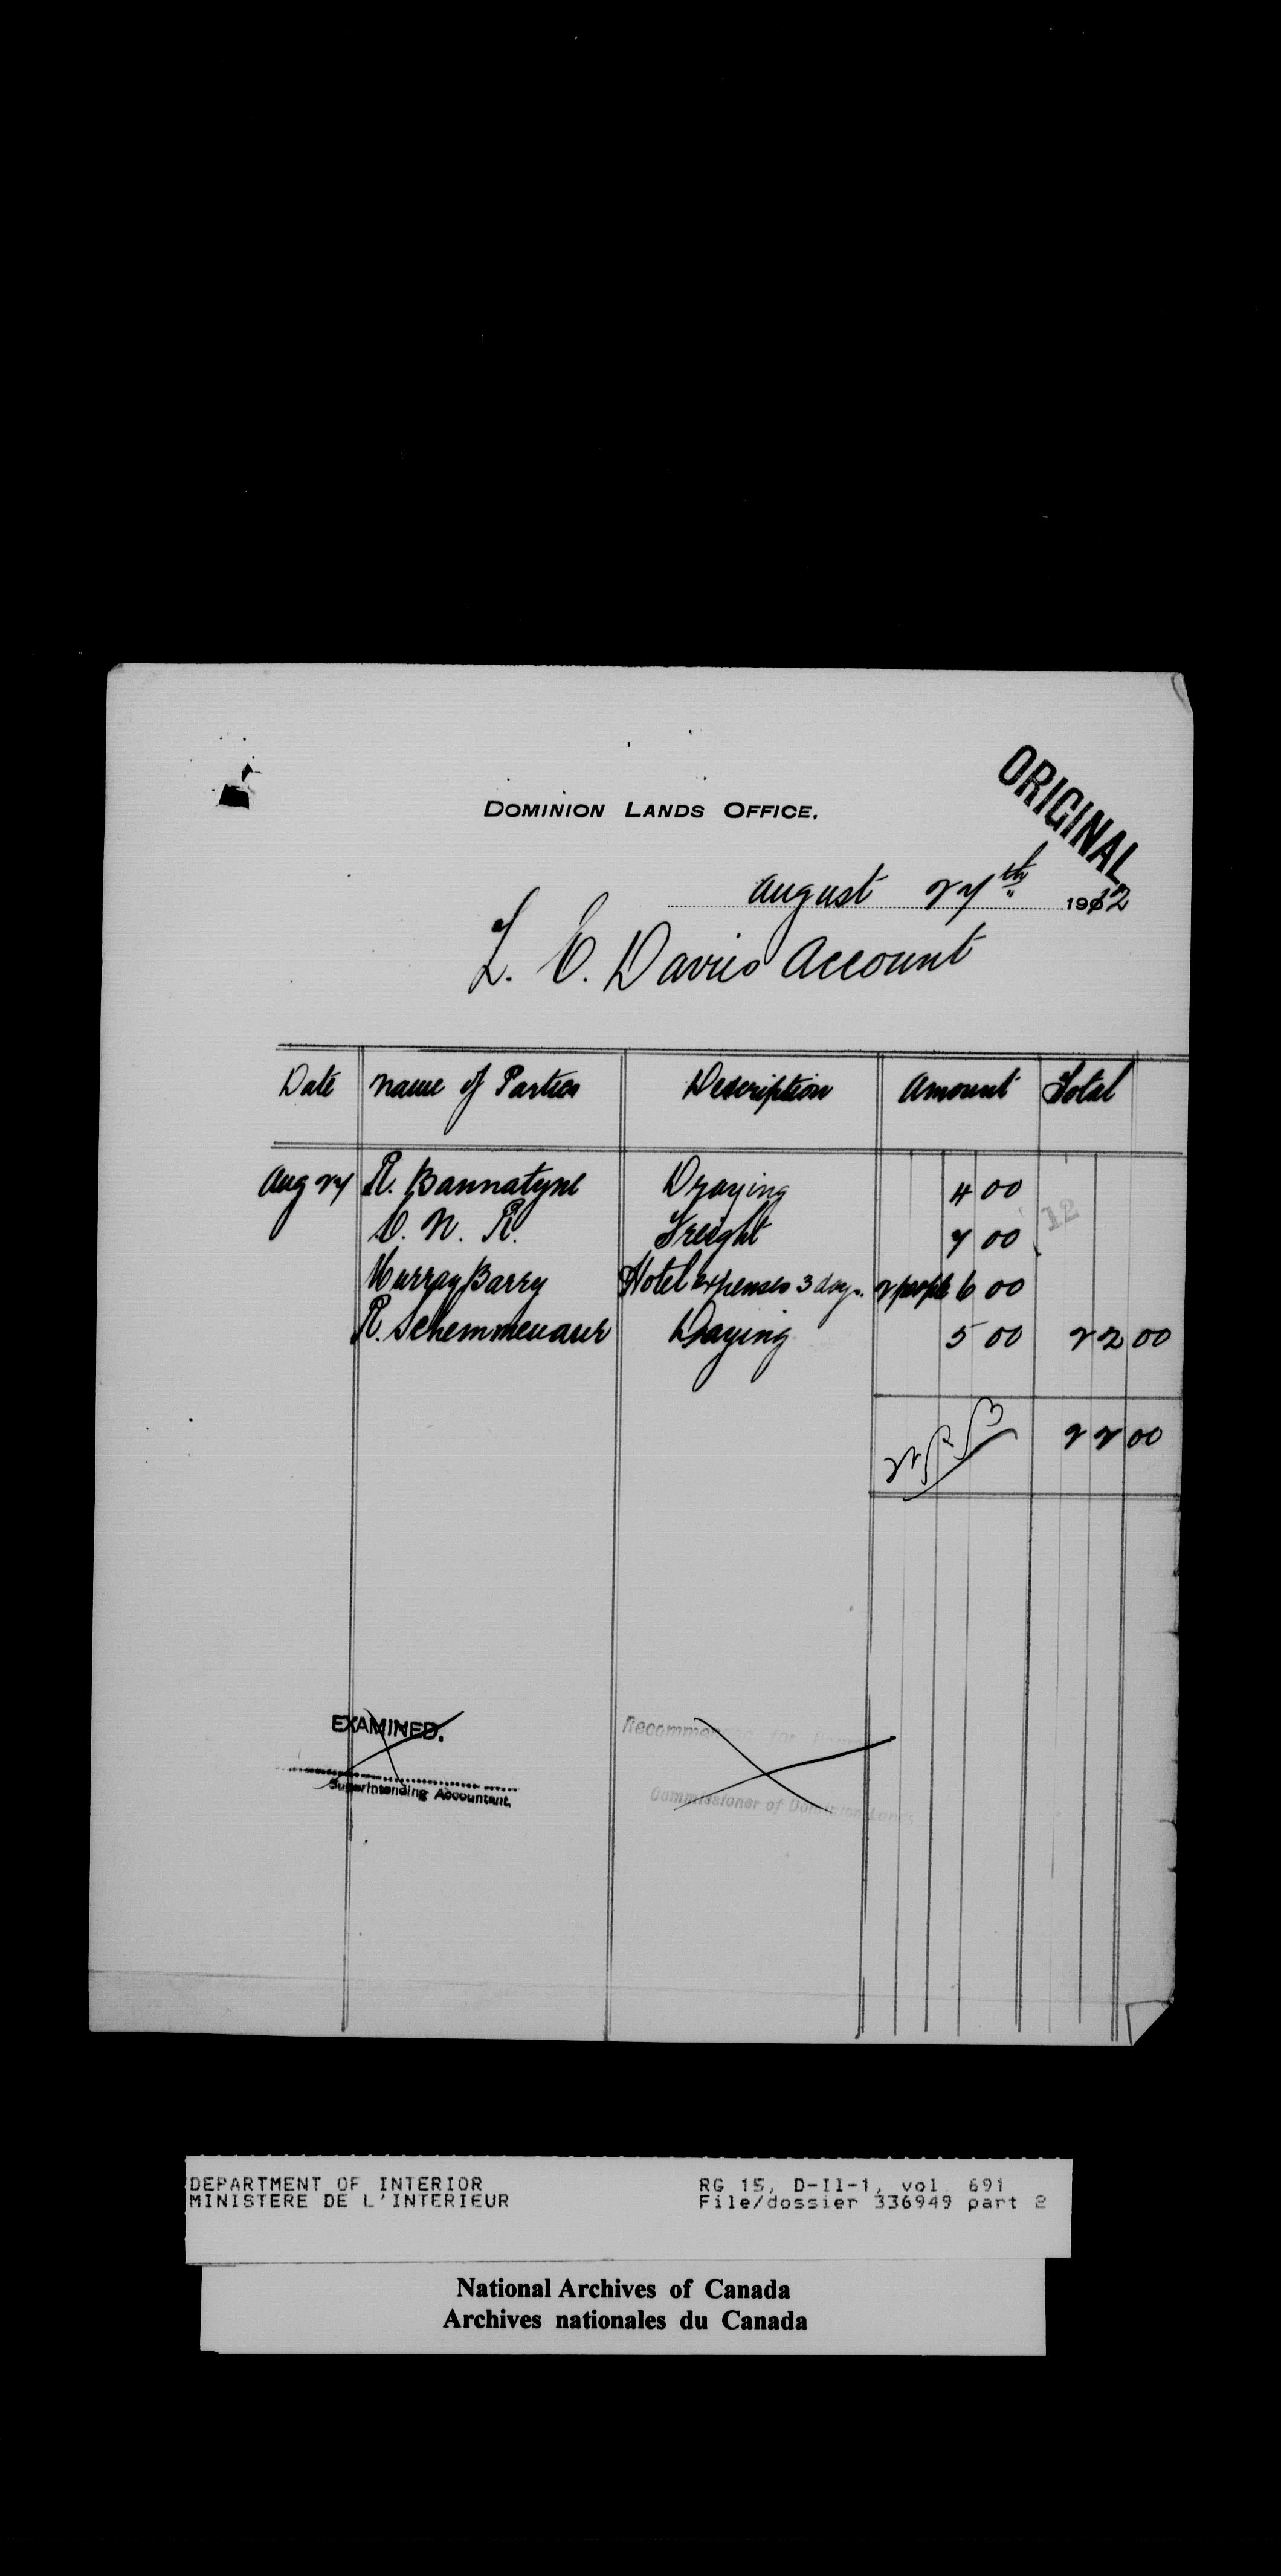 DOMINION LANDS OFFICE.
ORIGINAL
August 27th 1912
L. E. Davies Account
Date Name of Parties Description Amount Total
Aug 27 R. Bannatyne Draying 4 00
C. N. R. Freight 7 00
12
Murray Barry Hotel expenses 3 days. 2 people 6 00
R. Schemmenaur Draying 5 00 22 00
22 00
EXAMINED.
Superintending Accountant.
Recommended for Payment
Commissioner of Dominion Lands
DEPARTMENT OF INTERIOR RG 15, D-II-1, vol. 691
MINISTERE DE L'INTERIEUR File/dossier 336949 part 2
National Archives of Canada
Archives nationales du Canada